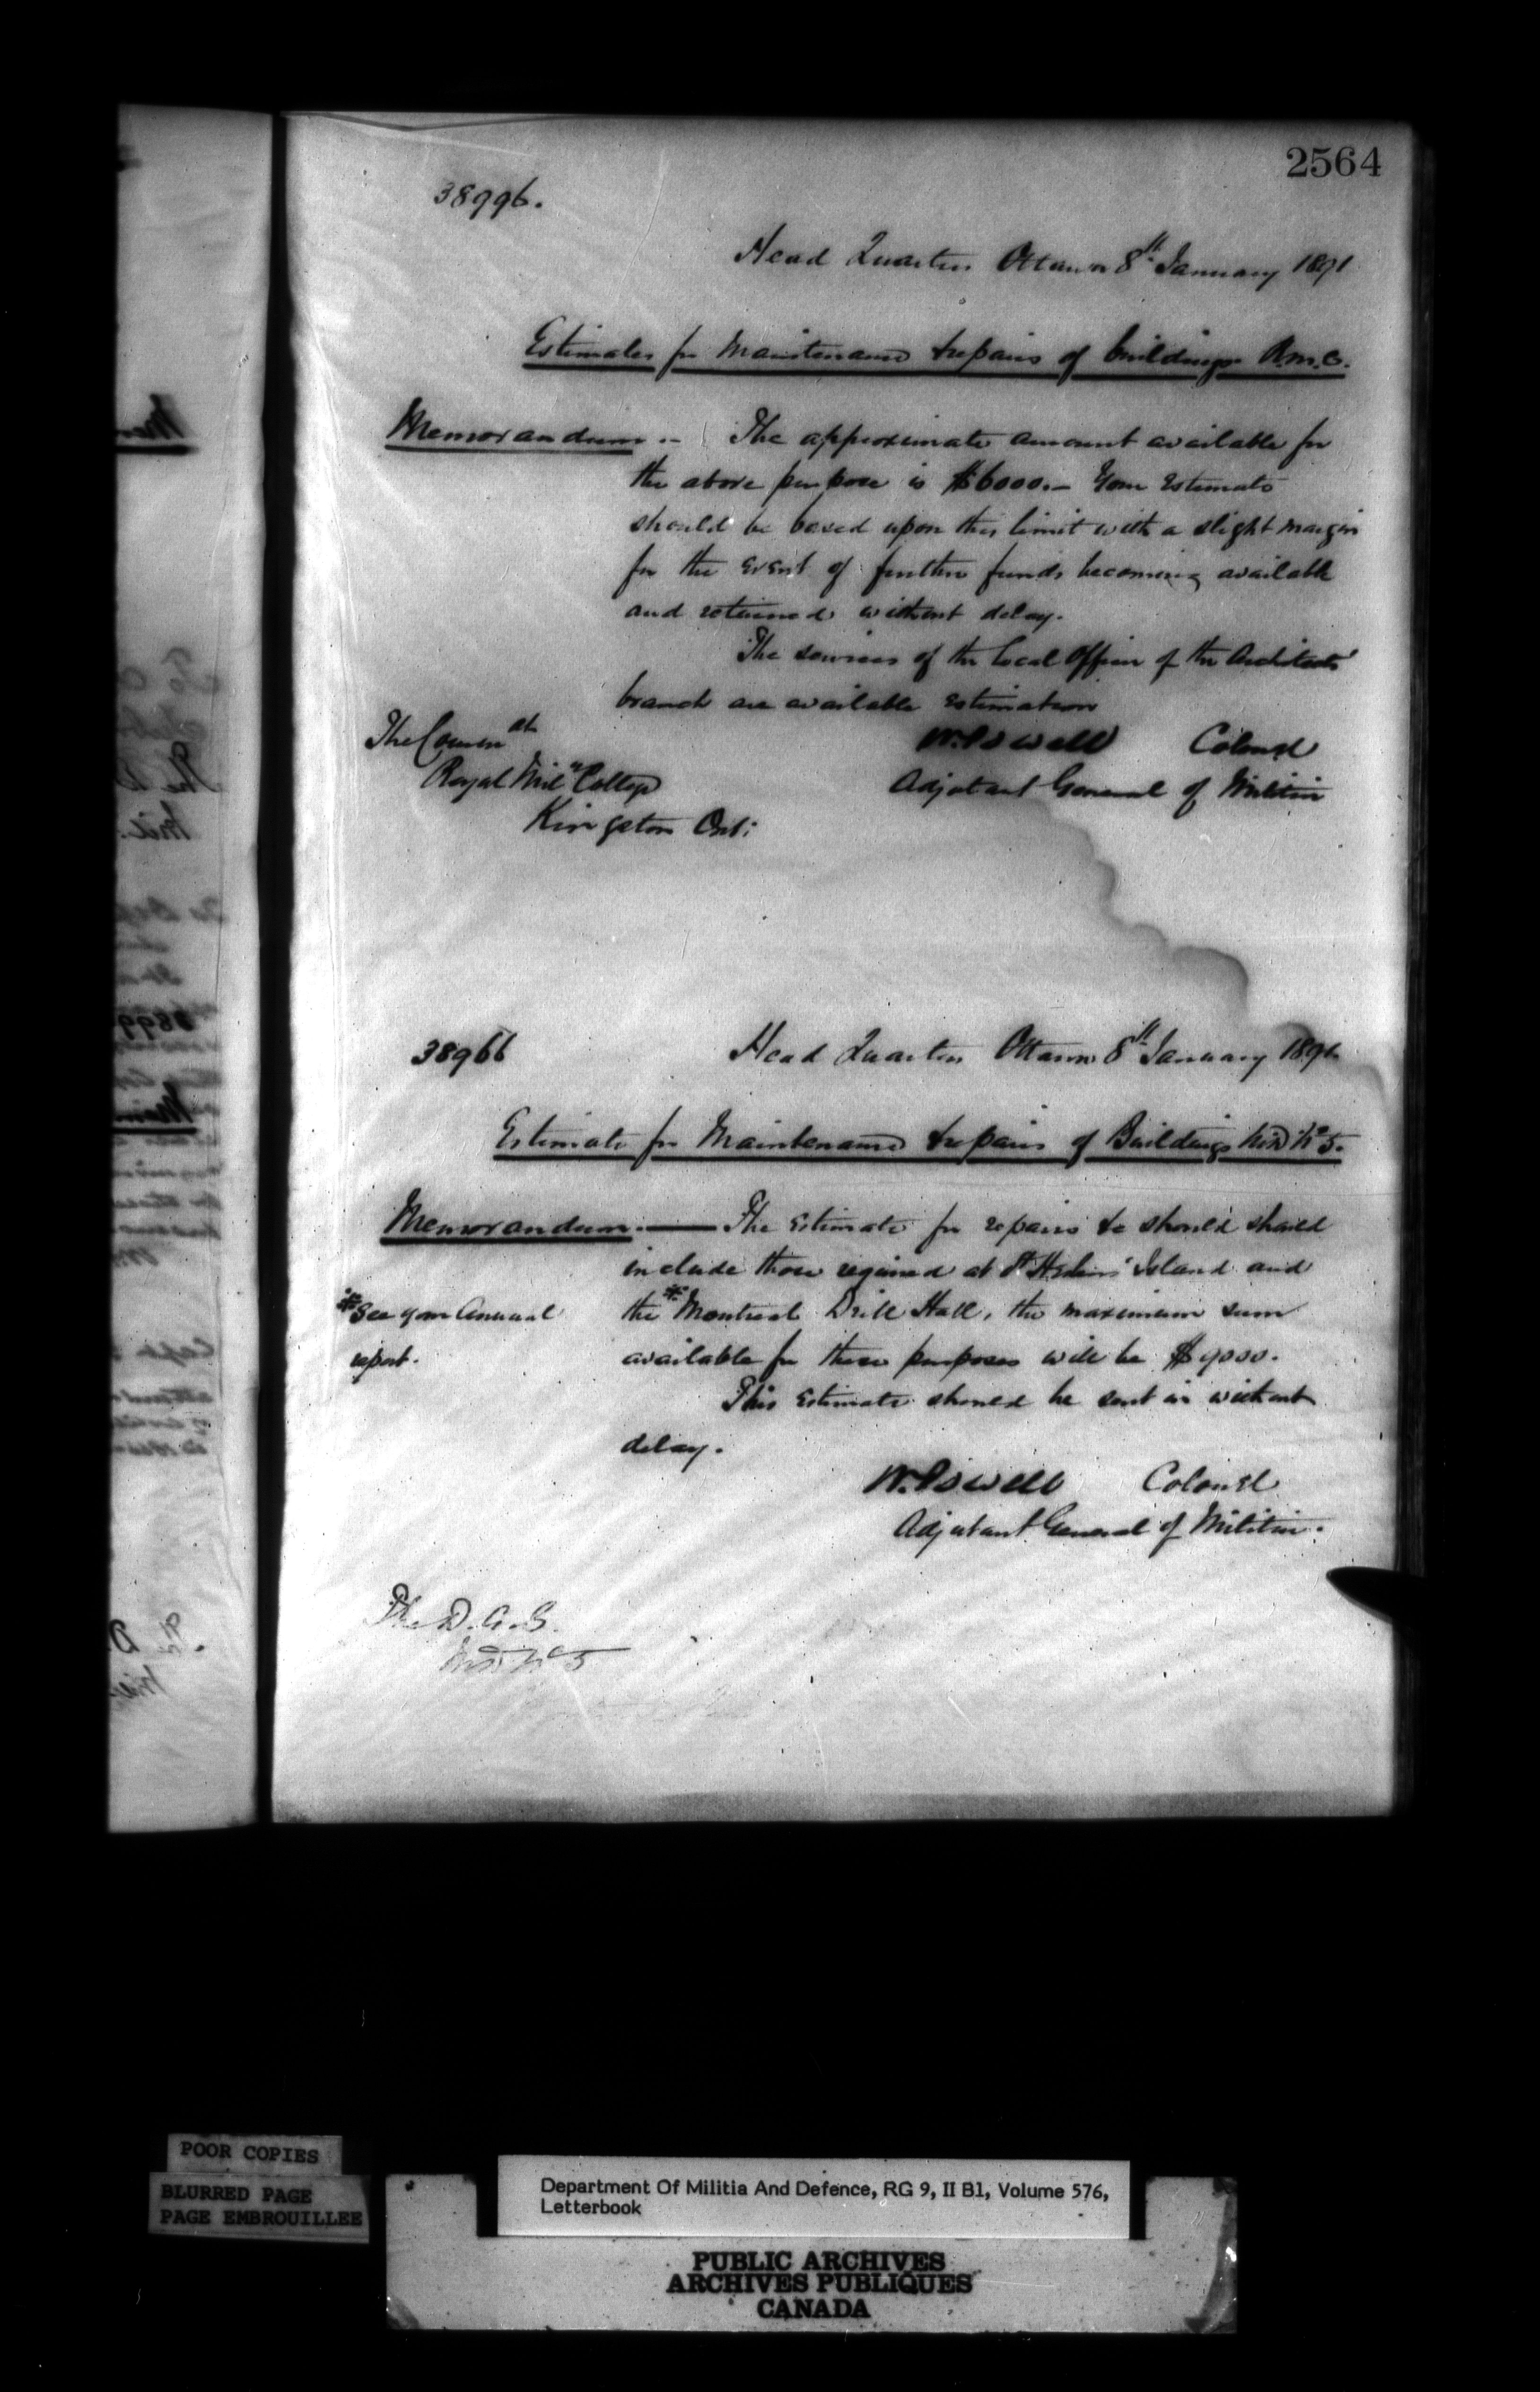 2564
38996.
Head Quarters Ottawa 8th January 1891
Estimates for Maintenance & repairs of buildings R.M.C.
Memorandum .- The approximate amount available for
the above purpose is $6000.- Your Estimate
should be based upon this limit with a slight margin
for the event of further funds becoming available
and returned without delay.
The services of the local Officer of the Architects'
branch are available estimation
The Commdt
W. Powell Colonel
Royal Mily College
Adjutant General of Militia
Kingston Ont:
38966
Head Quarters Ottawa 8th January 1891
Estimate for Maintenance & repairs of Buildings M.D. No 5.
Memorandum. — The Estimate for repairs &c should should
include those required at St Helens' Island and
*See your Annual
the *Montreal Drill Hall, the maximum sum
report.
available for these purposes will be $9000.
This Estimate should be sent in without
delay.
W. Powell Colonel
Adjutant General of Militia.
The D.A.G.
M.D. No 5
POOR COPIES
BLURRED PAGE
PAGE EMBROUILLEE
Department Of Militia And Defence, RG 9, II B1, Volume 576,
Letterbook
PUBLIC ARCHIVES
ARCHIVES PUBLIQUES
CANADA